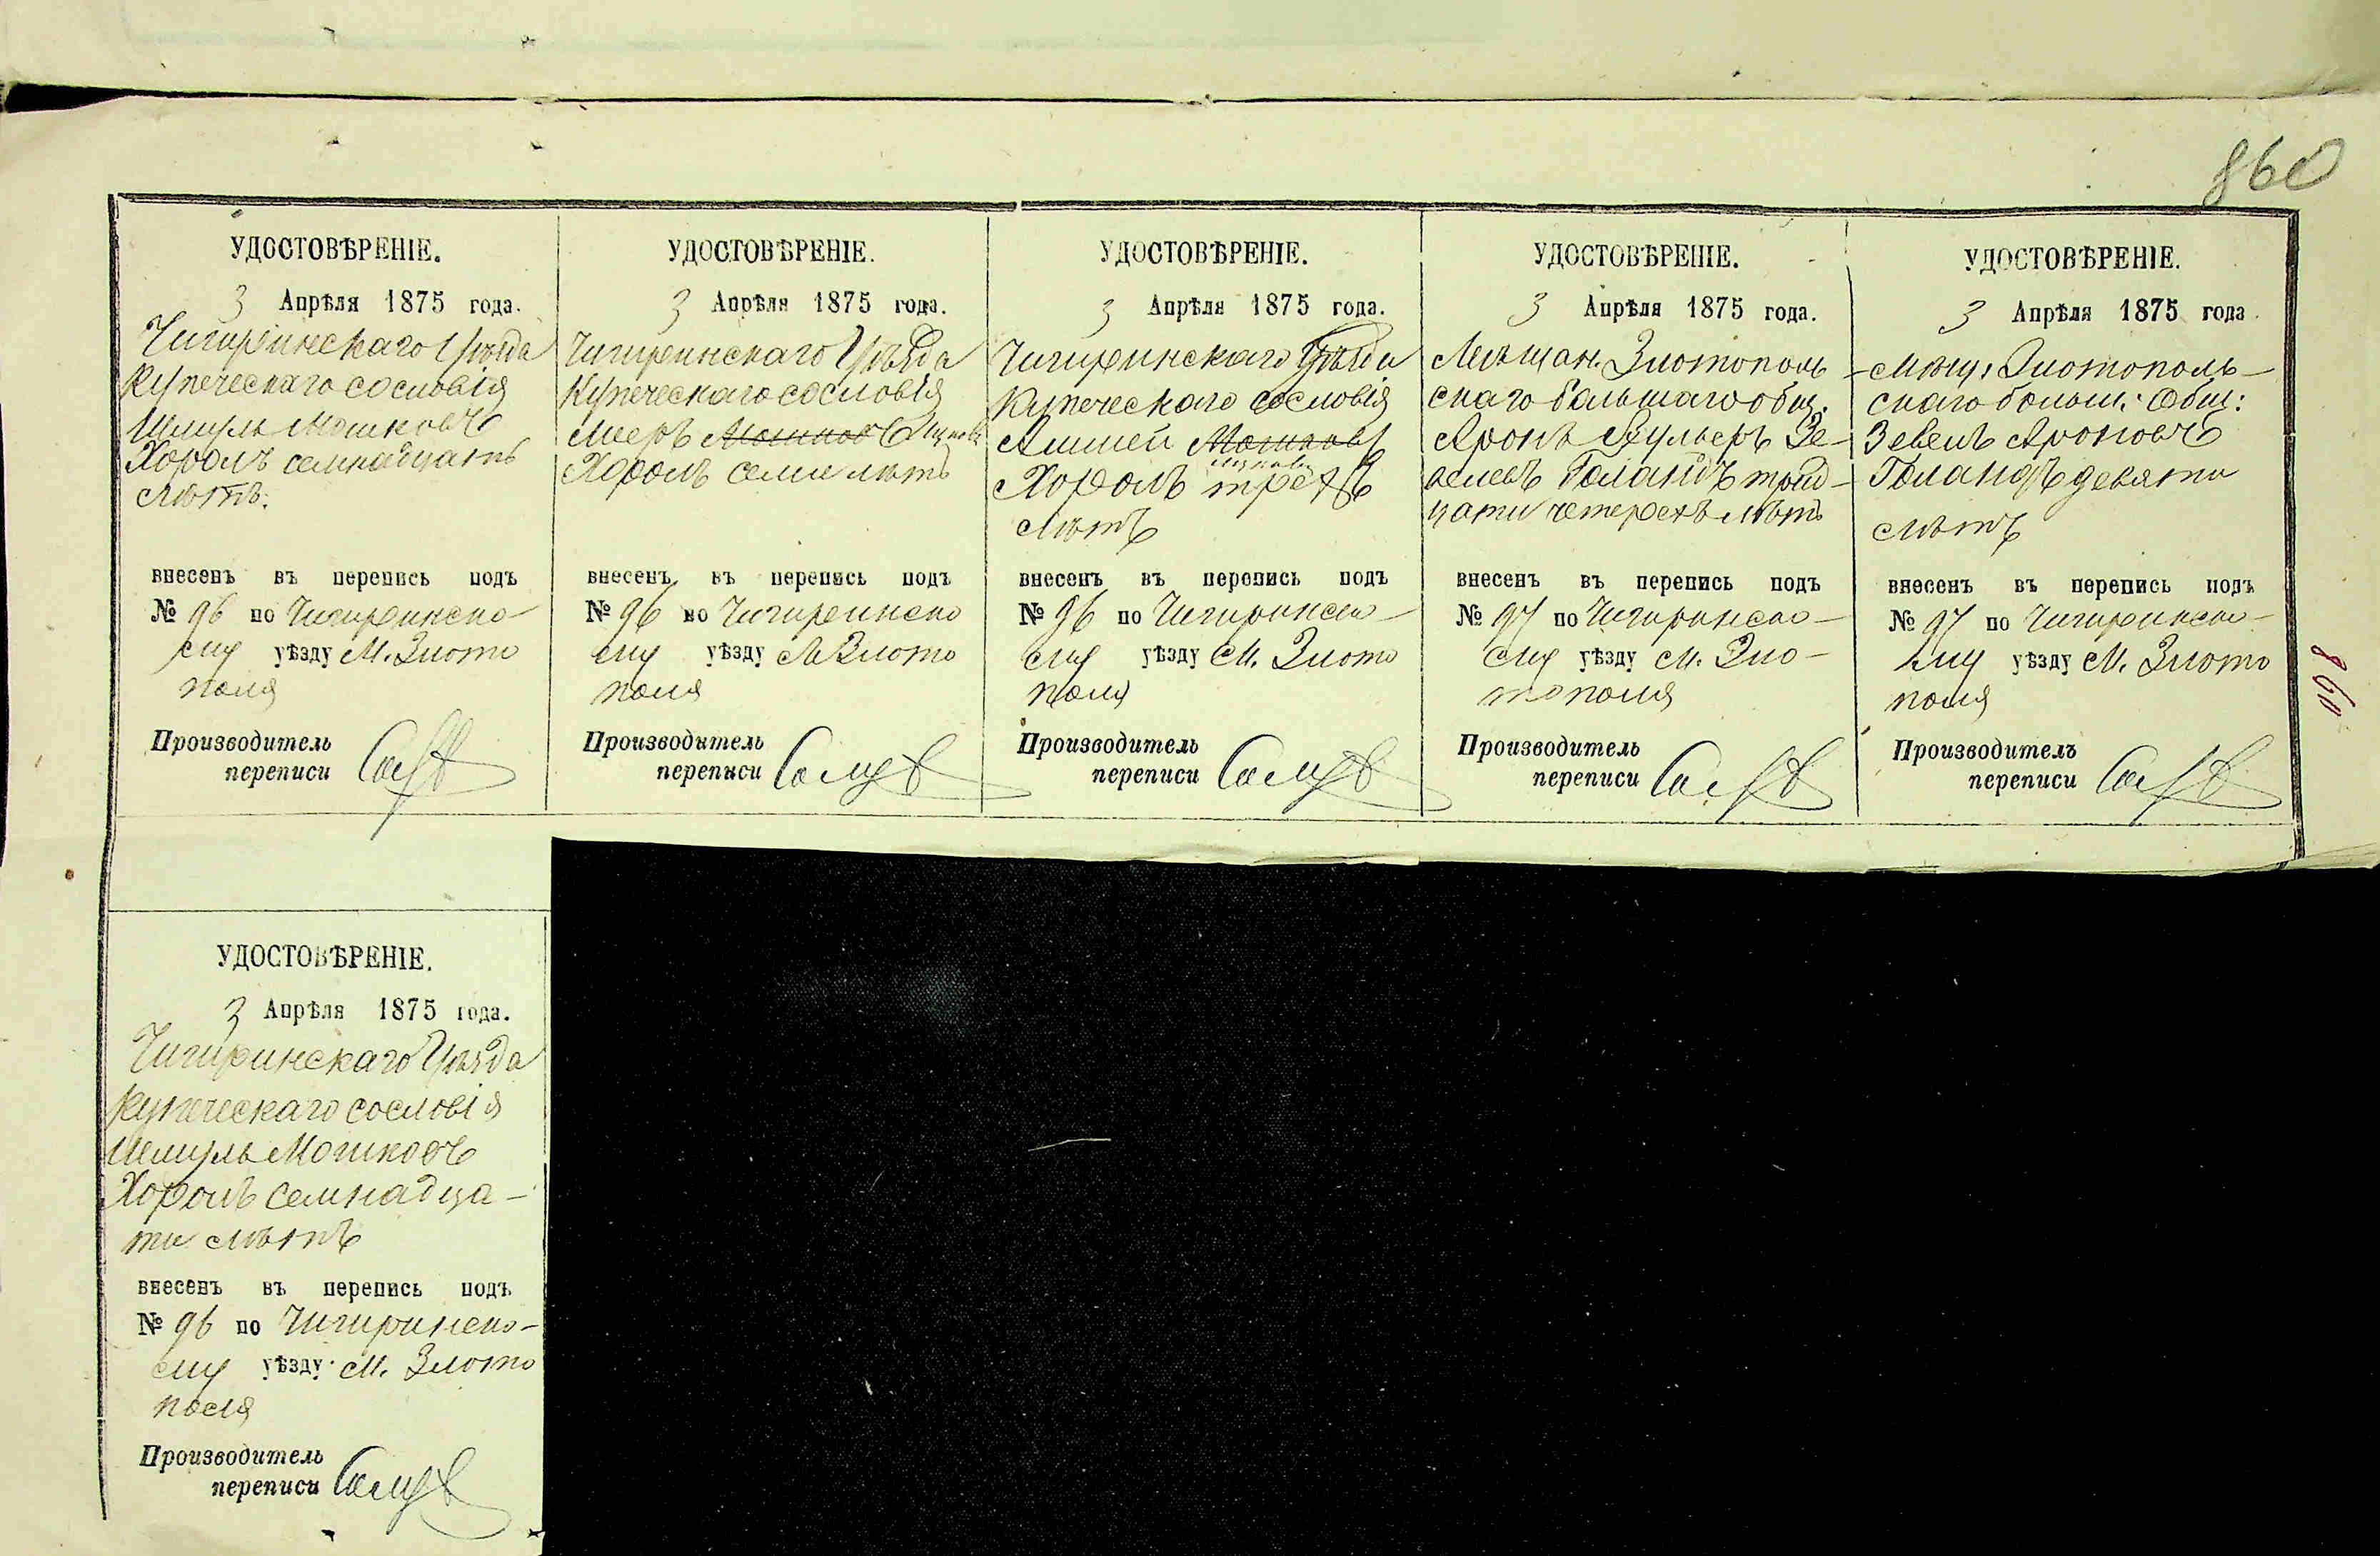 860
УДОСТОВѢРЕНІЕ.
3 Апрѣля 1875 года.
Чигиринскаго Уѣзда
Купеческаго сословія
Шмуль Мошковъ
Хоролъ семнадцать
лѣтъ.
внесенъ въ перепись подъ
№ 96 по Чигиринско-
му уѣзду М. Злото
поля
Производитель
переписи
УДОСТОВѢРЕНІЕ.
3 Апрѣля 1875 года.
Чигиринскаго Уѣзда
Купеческаго сословія
Мееръ Мошковъ
Хоролъ семи лѣтъ
внесенъ въ перепись подъ
№ 96 по Чигиринско
му уѣзду М Злото
поля
Производитель
переписи
УДОСТОВѢРЕНІЕ.
3 Апрѣля 1875 года.
Чигиринскаго Уѣзда
Купеческаго сословія
Мошковъ
Хоролъ трехъ
лѣтъ
внесенъ въ перепись подъ
№ 96 по Чигиринско-
му уѣзду М. Злото
поля
Производитель
переписи
УДОСТОВѢРЕНІЕ.
3 Апрѣля 1875 года.
Мѣщан. Злотополь
скаго большаго общ.
Аронъ Зе-
велевъ Голандъ трид-
цати четерехъ лѣтъ
внесенъ въ перепись подъ
№ 97 по Чигиринско-
му уѣзду М. Зло-
тополя
Производитель
переписи
УДОСТОВѢРЕНІЕ.
3 Апрѣля 1875 года.
Мѣщ. Злотополь-
скаго больш. Общ:
Зевель Ароновъ
Голандъ девяти
лѣтъ
внесенъ въ перепись подъ
№ 97 по Чигиринско-
му уѣзду М. Злото
поля
Производитель
переписи
860
УДОСТОВѢРЕНІЕ.
3 Апрѣля 1875 года.
Чигиринскаго Уѣзда
Купеческаго сословія
Шмуль Мошковъ
Хоролъ семнадца-
ти лѣтъ
внесенъ въ перепись подъ
№ 96 по Чигиринско-
му уѣзду М. Злото
поля
Производитель
переписи